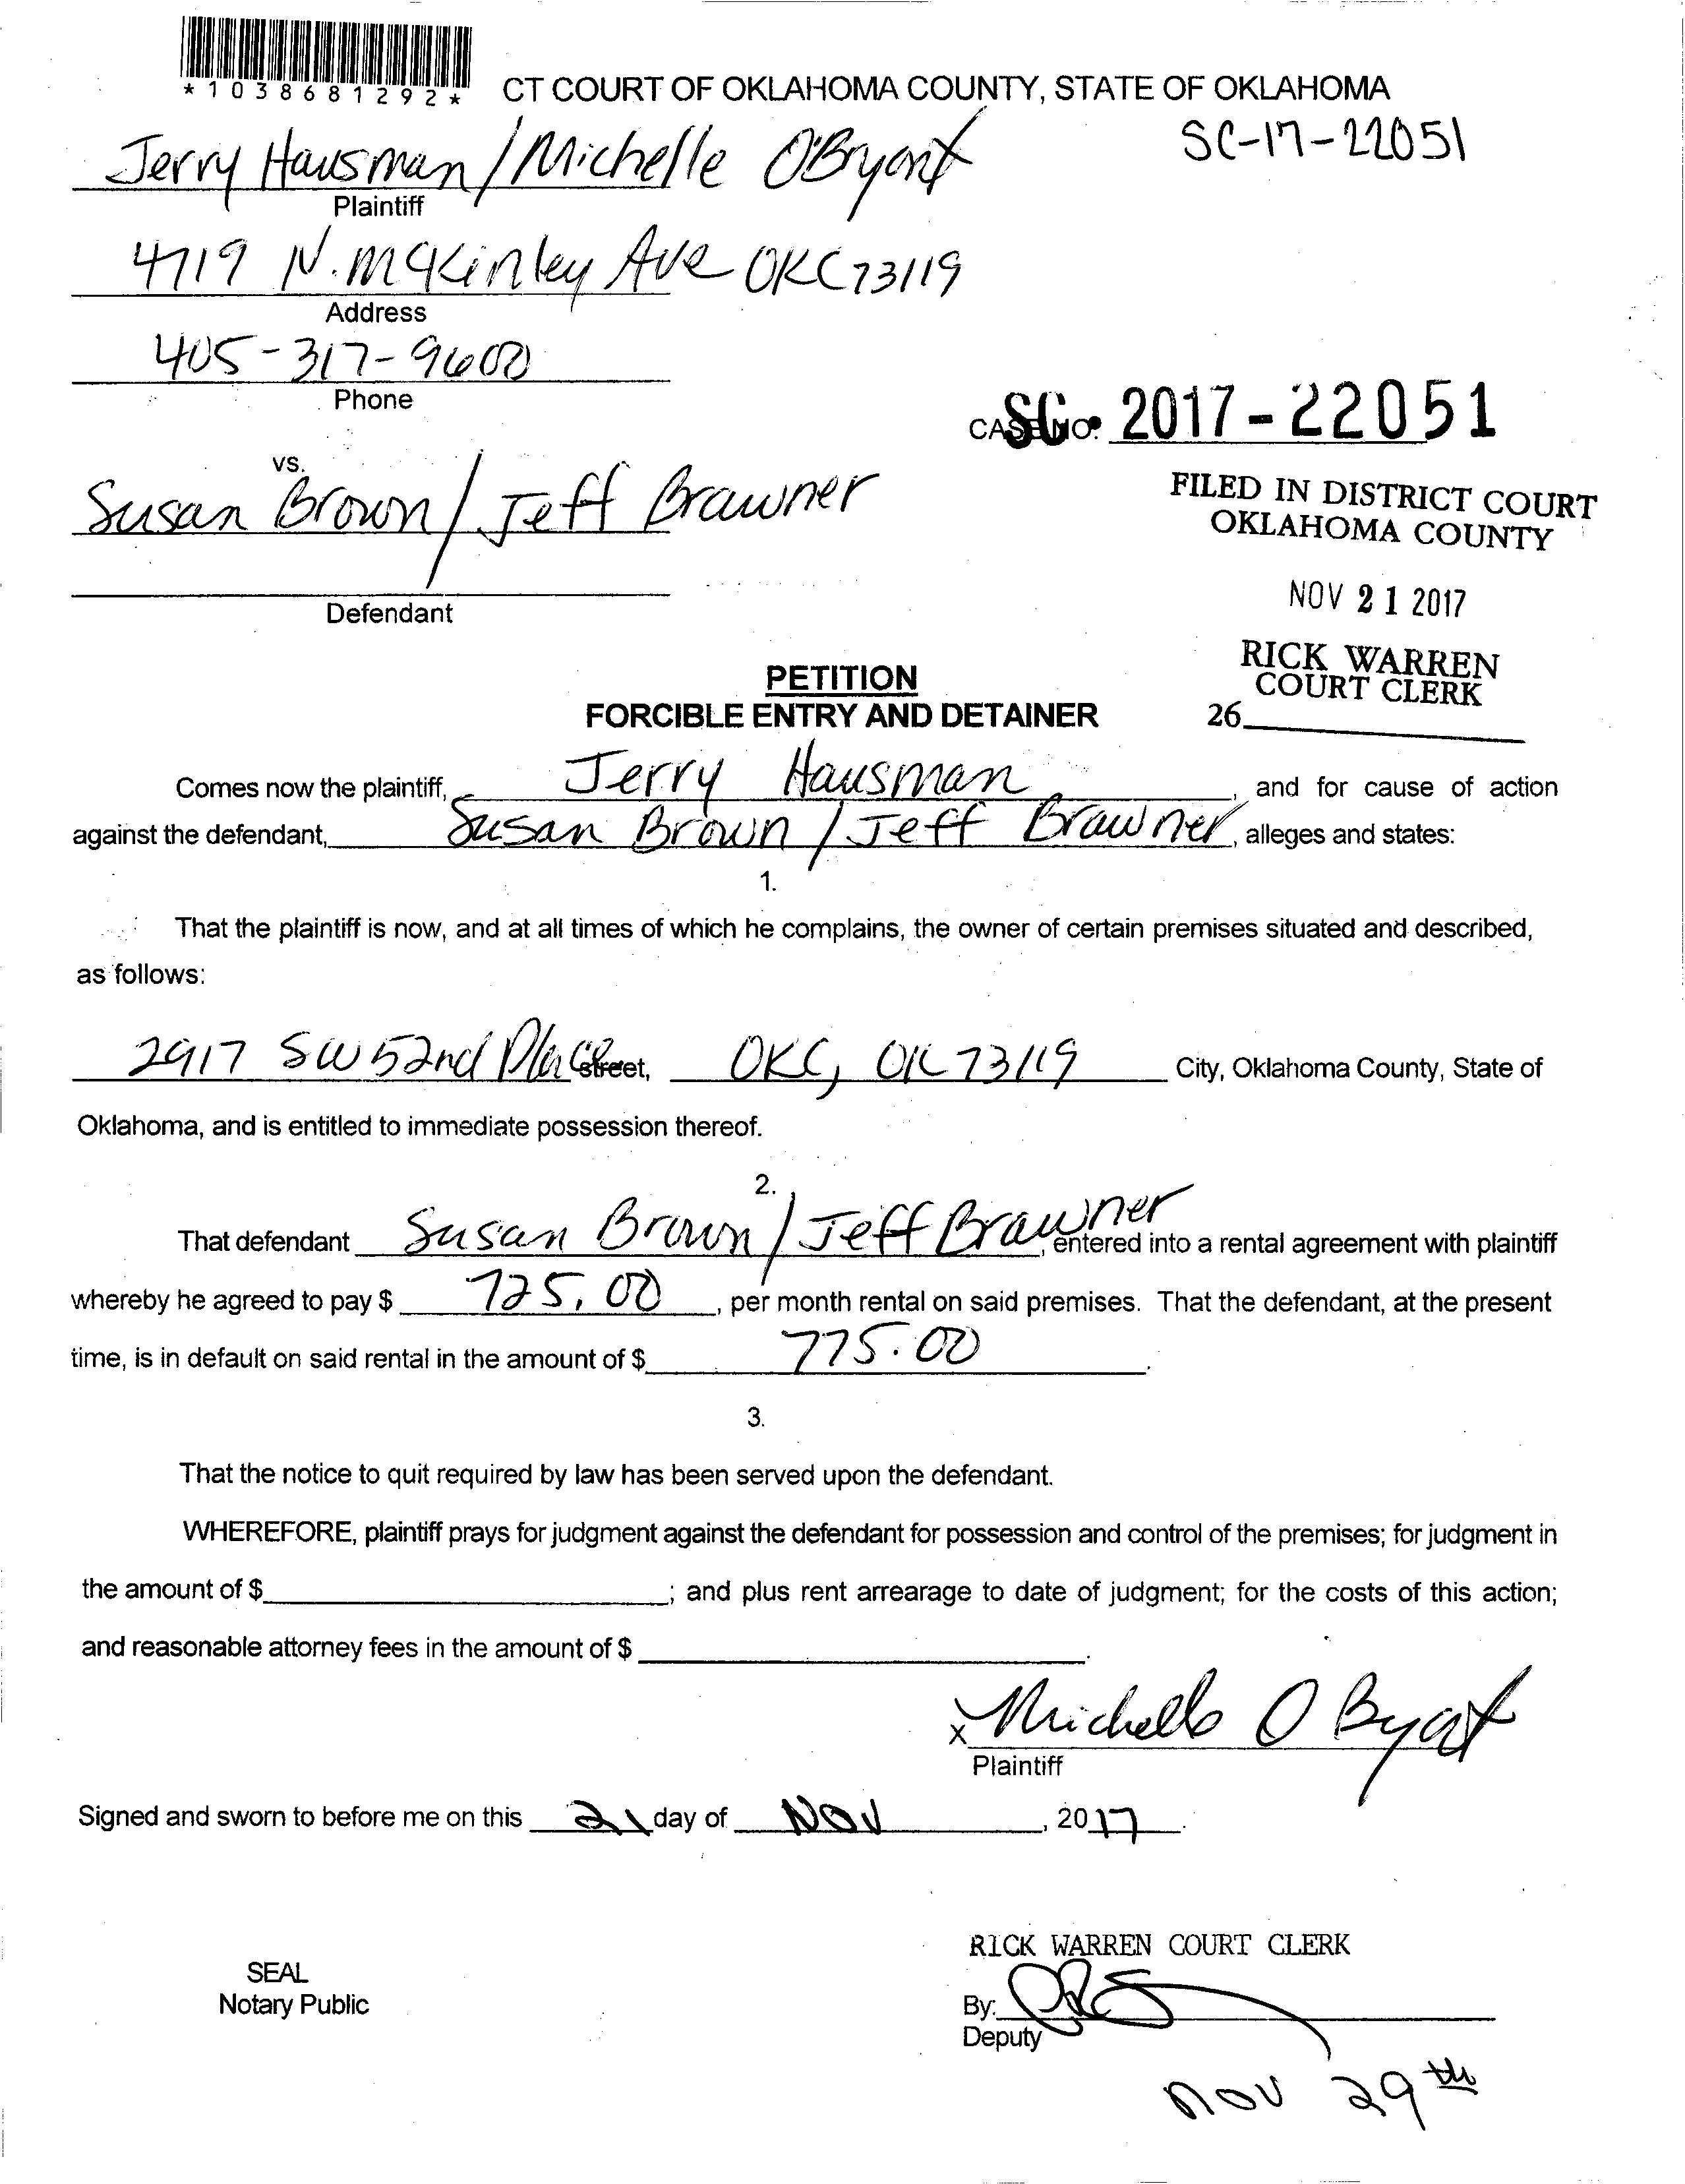 *1038681292*
CT COURT OF OKLAHOMA COUNTY, STATE OF OKLAHOMA
SC-17-22051
Jerry Hausman / Michelle O'Bryant
Plaintiff
4719 N. McKinley Ave OKC 73119
Address
405-317-9600
Phone
CASE NO. SC 2017-22051
vs.
Susan Brown / Jeff Brawner
Defendant
FILED IN DISTRICT COURT
OKLAHOMA COUNTY
NOV 21 2017
RICK WARREN
COURT CLERK
26
PETITION
FORCIBLE ENTRY AND DETAINER
Comes now the plaintiff, Jerry Hausman, and for cause of action
against the defendant, Susan Brown / Jeff Brawner, alleges and states:
1.
That the plaintiff is now, and at all times of which he complains, the owner of certain premises situated and described,
as follows:
2917 SW 52nd Place Street, OKC, OK 73119 City, Oklahoma County, State of
Oklahoma, and is entitled to immediate possession thereof.
2.
That defendant Susan Brown / Jeff Brawner, entered into a rental agreement with plaintiff
whereby he agreed to pay $ 725.00, per month rental on said premises. That the defendant, at the present
time, is in default on said rental in the amount of $ 775.00.
3.
That the notice to quit required by law has been served upon the defendant.
WHEREFORE, plaintiff prays for judgment against the defendant for possession and control of the premises; for judgment in
the amount of $ ; and plus rent arrearage to date of judgment; for the costs of this action;
and reasonable attorney fees in the amount of $ .
x Michelle O Byant
Plaintiff
Signed and sworn to before me on this 21 day of NOV, 2017.
RICK WARREN COURT CLERK
SEAL
Notary Public
By:
Deputy
NOV 29th